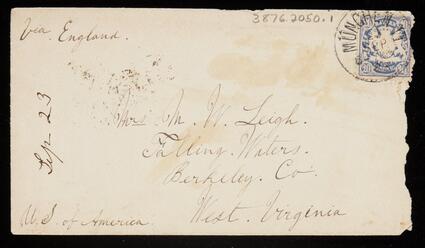 3876.2050.1
Via. England.
MÜNCHEN
20
Sep 23
Mrs M. W. Leigh.
Falling. Waters.
Berkeley. Co.
West. Virginia
U.S. of America.